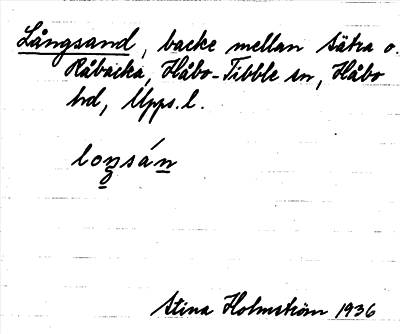 Långsand, backe mellan Sätra o.
Råbacka, Håbo-Tibble sn, Håbo
hd, Upps.l.
loŋsán
Stina Holmström 1936